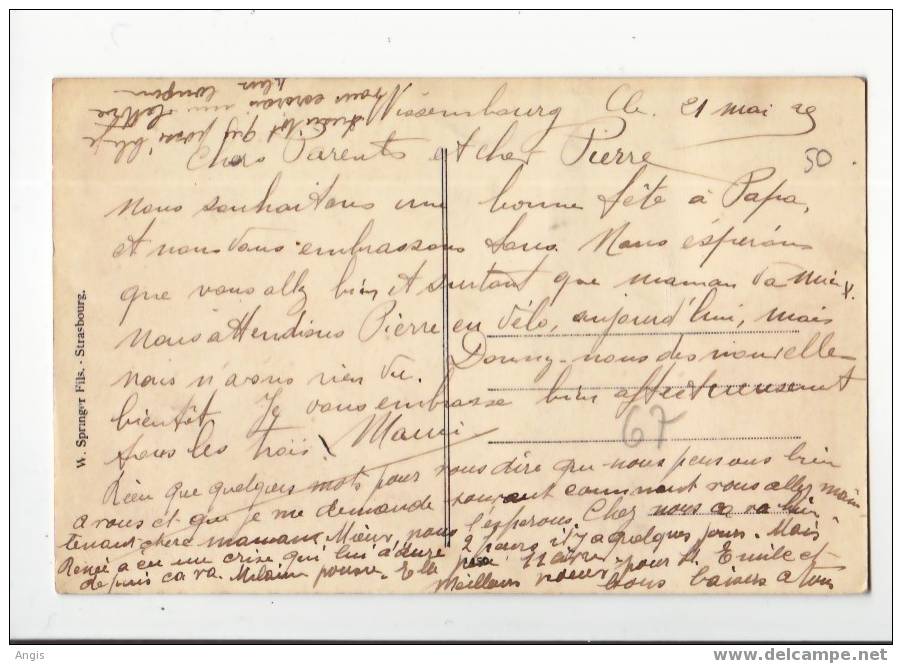 Wissembourg le 21 mai 29
Chers Parents et cher Pierre
50
nous souhaitons une bonne fête à Papa,
et nous vous embrassons tous. Nous espérons
que vous allez bien et surtout que maman va mieux.
Nous attendions Pierre en vélo, aujourd'hui, mais
nous n'avons rien vu. Donnez-nous des nouvelles
bientôt. Je vous embrasse bien affectueusement
tous les trois.
67
Rien que quelques mots pour vous dire que nous pensons bien
à vous et que je me demande souvent comment vous allez main-
tenant chère maman. Mieux, nous l'espérons. Chez nous ça va bien.
Renée a eu une crise qui lui a duré 2 jours il y a quelques jours. Mais
depuis ça va. pousse. Elle pour St. Emile et
Meilleurs bons baisers à tous
W. Springer Fils. - Strasbourg.
Angis
www.delcampe.net